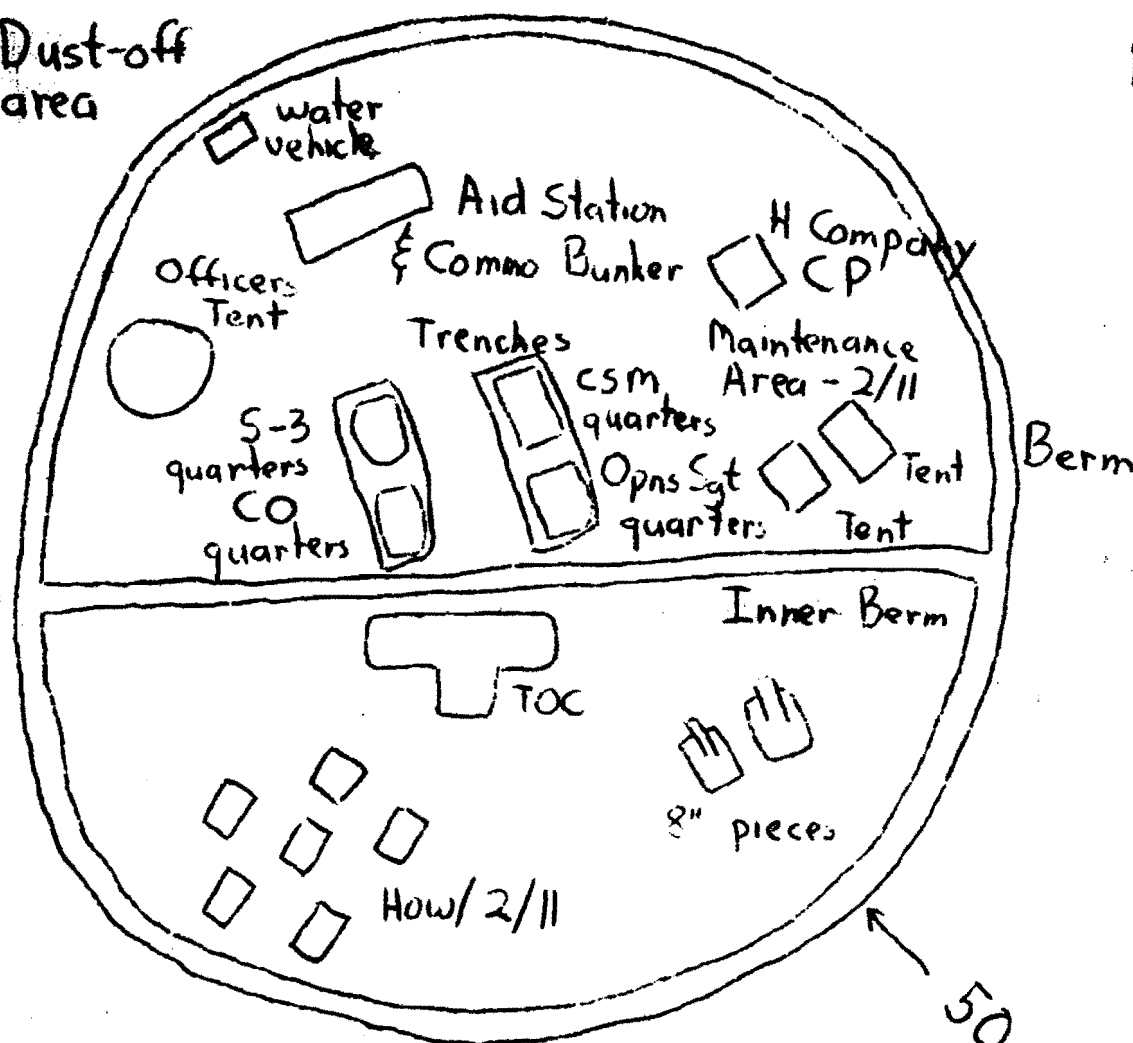 Dust-off
area
water
vehicle
Aid Station
& Commo Bunker
H Company
CP
Officers
Tent
Trenches
Maintenance
Area - 2/11
CSM
quarters
S-3
quarters
CO
quarters
Opns Sgt
quarters
Tent
Tent
Berm
Inner Berm
TOC
8" pieces
How/2/11
50